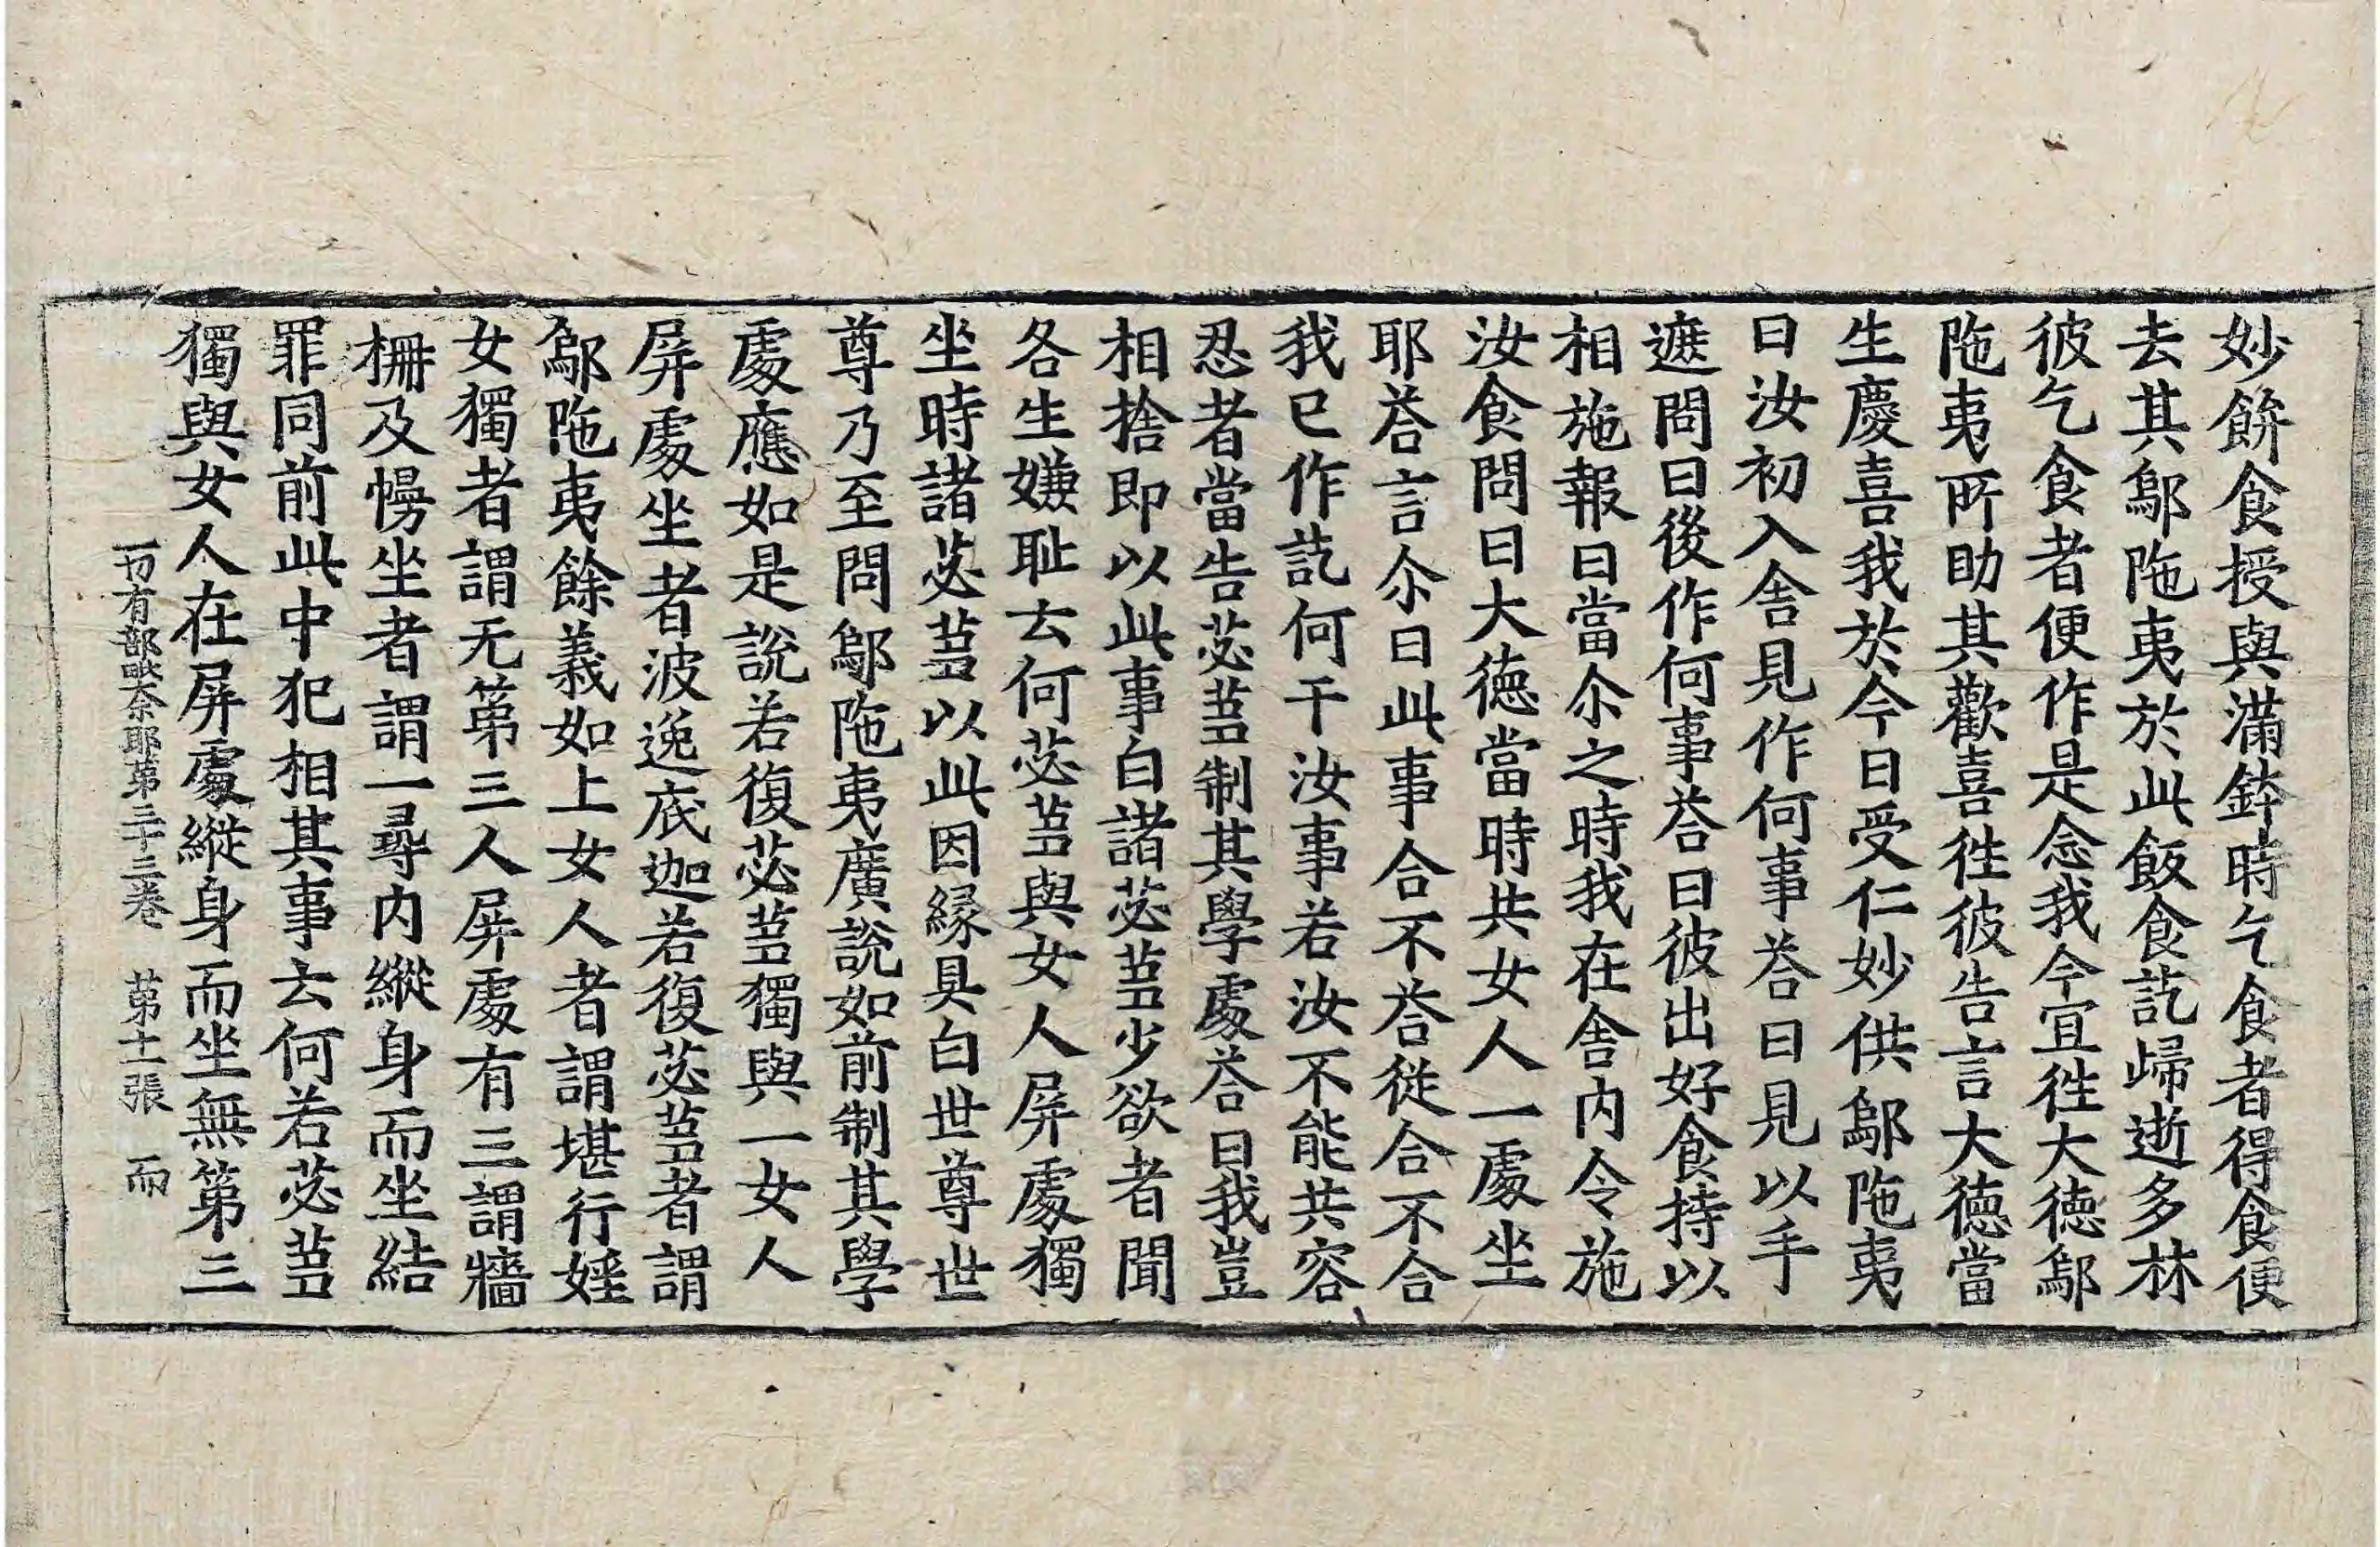 妙餅食授與滿鉢時乞食者得食便
去其鄔陁夷於此飯食訖歸逝多林
彼乞食者便作是念我今宜徃大德鄔
陁夷所助其歡喜徃彼告言大德當
生慶喜我於今日受仁妙供鄔陁夷
曰汝初入舍見作何事荅曰見以手
遮問曰後作何事荅曰彼出好食持以
相施報曰當尒之時我在舍内令施
汝食問曰大德當時共女人一處坐
耶荅言尒曰此事合不荅從合不合
我已作訖何干汝事若汝不能共容
忍者當告苾芻制其學處荅曰我豈
相捨即以此事白諸苾芻少欲者聞
各生嫌耻去何苾芻與女人屏處獨
坐時諸苾芻以此因緣具白世尊世
尊乃至問鄔陁夷廣說如前制其學
處應如是說若復苾芻獨與一女人
屏處坐者波逸底迦若復苾芻者謂
鄔陁夷餘義如上女人者謂堪行婬
女獨者謂无第三人屏處有三謂牆
柵及幔坐者謂一尋内縱身而坐結
罪同前此中犯相其事去何若苾芻
獨與女人在屏處縱身而坐無第三
一切有部毗奈耶第三十三卷 第十一張 而